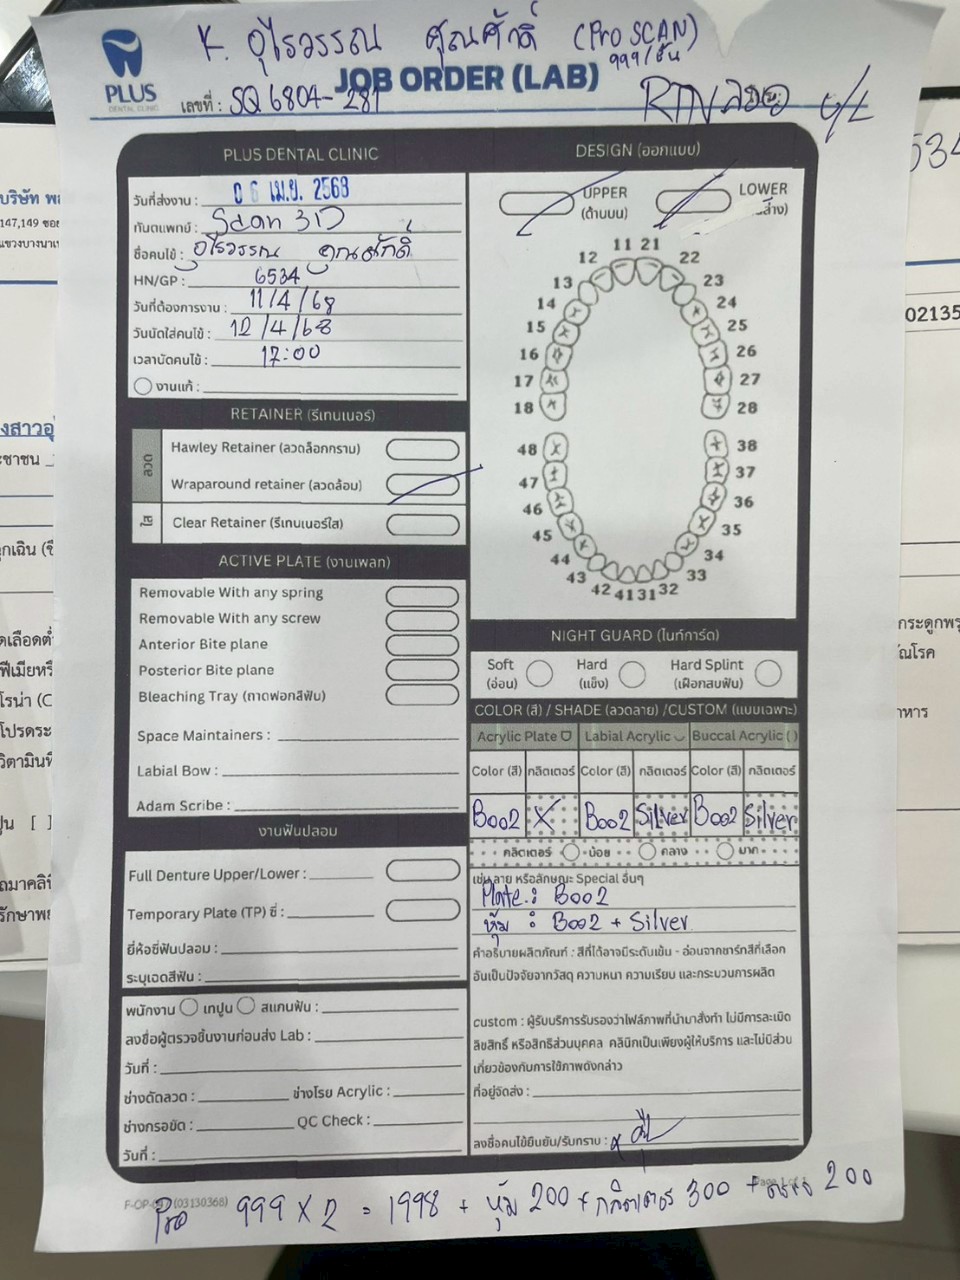 K. อุไรวรรณ คุณศักดิ์ (Pro SCAN)
999/ชิ้น
PLUS
DENTAL CLINIC
JOB ORDER (LAB)
เลขที่ : SQ 6804-281
RTN ลวด U/L
PLUS DENTAL CLINIC
วันที่ส่งงาน : 06 เม.ย. 2568
ทันตแพทย์ : Scan 3D
ชื่อคนไข้ : อุไรวรรณ คุณศักดิ์
HN/GP : 6534
วันที่ต้องการงาน : 11/4/68
วันนัดใส่คนไข้ : 12/4/68
เวลานัดคนไข้ : 17:00
งานแก้ :
RETAINER (รีเทนเนอร์)
ลวด
Hawley Retainer (ลวดล็อกกราม)
Wraparound retainer (ลวดล้อม)
ใส
Clear Retainer (รีเทนเนอร์ใส)
ACTIVE PLATE (งานเพลท)
Removable With any spring
Removable With any screw
Anterior Bite plane
Posterior Bite plane
Bleaching Tray (ถาดฟอกสีฟัน)
Space Maintainers :
Labial Bow :
Adam Scribe :
งานฟันปลอม
Full Denture Upper/Lower :
Temporary Plate (TP) ซี่ :
ยี่ห้อซี่ฟันปลอม :
ระบุเฉดสีฟัน :
พนักงาน เทปูน สแกนฟัน :
ลงชื่อผู้ตรวจชิ้นงานก่อนส่ง Lab :
วันที่ :
ช่างดัดลวด : ช่างโรย Acrylic :
ช่างกรอขัด : QC Check :
วันที่ :
DESIGN (ออกแบบ)
UPPER
(ด้านบน)
LOWER
ล่าง)
11 21
12 22
13 23
14 24
15 25
16 26
17 27
18 28
48 38
47 37
46 36
45 35
44 34
43 33
42 41 31 32
NIGHT GUARD (ไนท์การ์ด)
Soft
(อ่อน)
Hard
(แข็ง)
Hard Splint
(เฝือกสบฟัน)
COLOR (สี) / SHADE (ลวดลาย) /CUSTOM (แบบเฉพาะ)
Acrylic Plate Labial Acrylic Buccal Acrylic ( )
Color (สี) กลิตเตอร์ Color (สี) กลิตเตอร์ Color (สี) กลิตเตอร์
B002 X B002 Silver B002 Silver
กลิตเตอร์ น้อย กลาง มาก
เช่น ลาย หรือลักษณะ Special อื่นๆ
Plate : B002
หุ้ม : B002 + Silver
คำอธิบายผลิตภัณฑ์ : สีที่ได้อาจมีระดับเข้ม - อ่อนจากชาร์ทสีที่เลือก
อันเป็นปัจจัยจากวัสดุ ความหนา ความเรียบ และกระบวนการผลิต
custom : ผู้รับบริการรับรองว่าไฟล์ภาพที่นำมาสั่งทำ ไม่มีการละเมิด
ลิขสิทธิ์ หรือสิทธิส่วนบุคคล คลินิกเป็นเพียงผู้ให้บริการ และไม่มีส่วน
เกี่ยวข้องกับการใช้ภาพดังกล่าว
ที่อยู่จัดส่ง :
ลงชื่อคนไข้ยืนยัน/รับทราบ :
(03130368)
Pro 999 x 2 = 1998 + หุ้ม 200 + กลิตเตอร์ 300 + 200
บริษัท
147,149 ซอย
แขวงบางนา
534
02135
งสาวอุ
วัณโรค